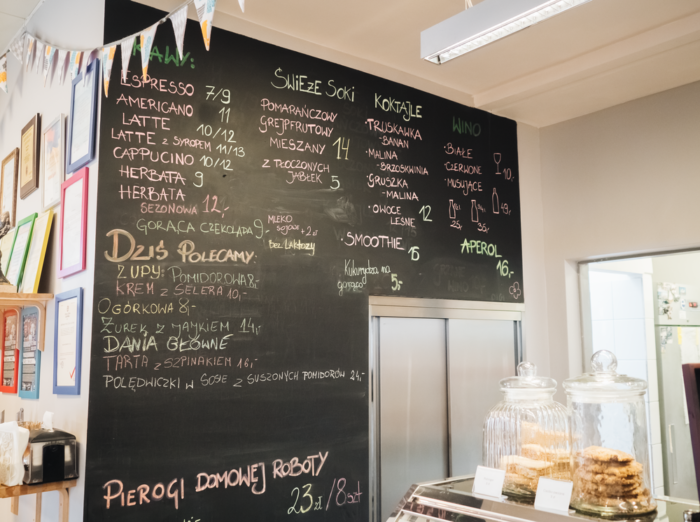 KAWY:
ESPRESSO 7/9
AMERICANO 11
LATTE 10/12
LATTE Z SYROPEM 11/13
CAPPUCINO 10/12
HERBATA 9
HERBATA
SEZONOWA 12,-
GORĄCA CZEKOLADA 9,-
MLEKO
SOJOWE +2zł
BEZ LAKTOZY
ŚWIEŻE SOKI
POMARAŃCZOWY
GREJPFRUTOWY
MIESZANY 14
Z TŁOCZONYCH
JABŁEK 5
KOKTAJLE
·TRUSKAWKA
-BANAN
·MALINA
-BRZOSKWINIA
·GRUSZKA
-MALINA
·OWOCE
LEŚNE 12
·SMOOTHIE 15
Kukurydza na
gorąco 5,-
WINO
·BIAŁE
·CZERWONE 10,-
·MUSUJĄCE
25,- 35,- 49,-
APEROL
16,-
DZIŚ POLECAMY:
ZUPY: POMIDOROWA 8,-
KREM Z SELERA 10,-
OGÓRKOWA 8,-
ŻUREK Z JAJKIEM 14,-
DANIA GŁÓWNE
TARTA Z SZPINAKIEM 16,-
POLĘDWICZKI W SOSIE Z SUSZONYCH POMIDORÓW 24,-
PIEROGI DOMOWEJ ROBOTY
23zł/8szt